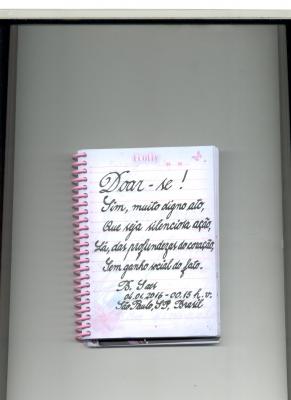 Doar-se!
Sim, muito digno ato,
Que seja silenciosa ação,
Lá, das profundezas do coração,
Sem ganho social do fato.
B. Saes
06.01.2016 - 00.15 h. v.
São Paulo, SP, Brasil